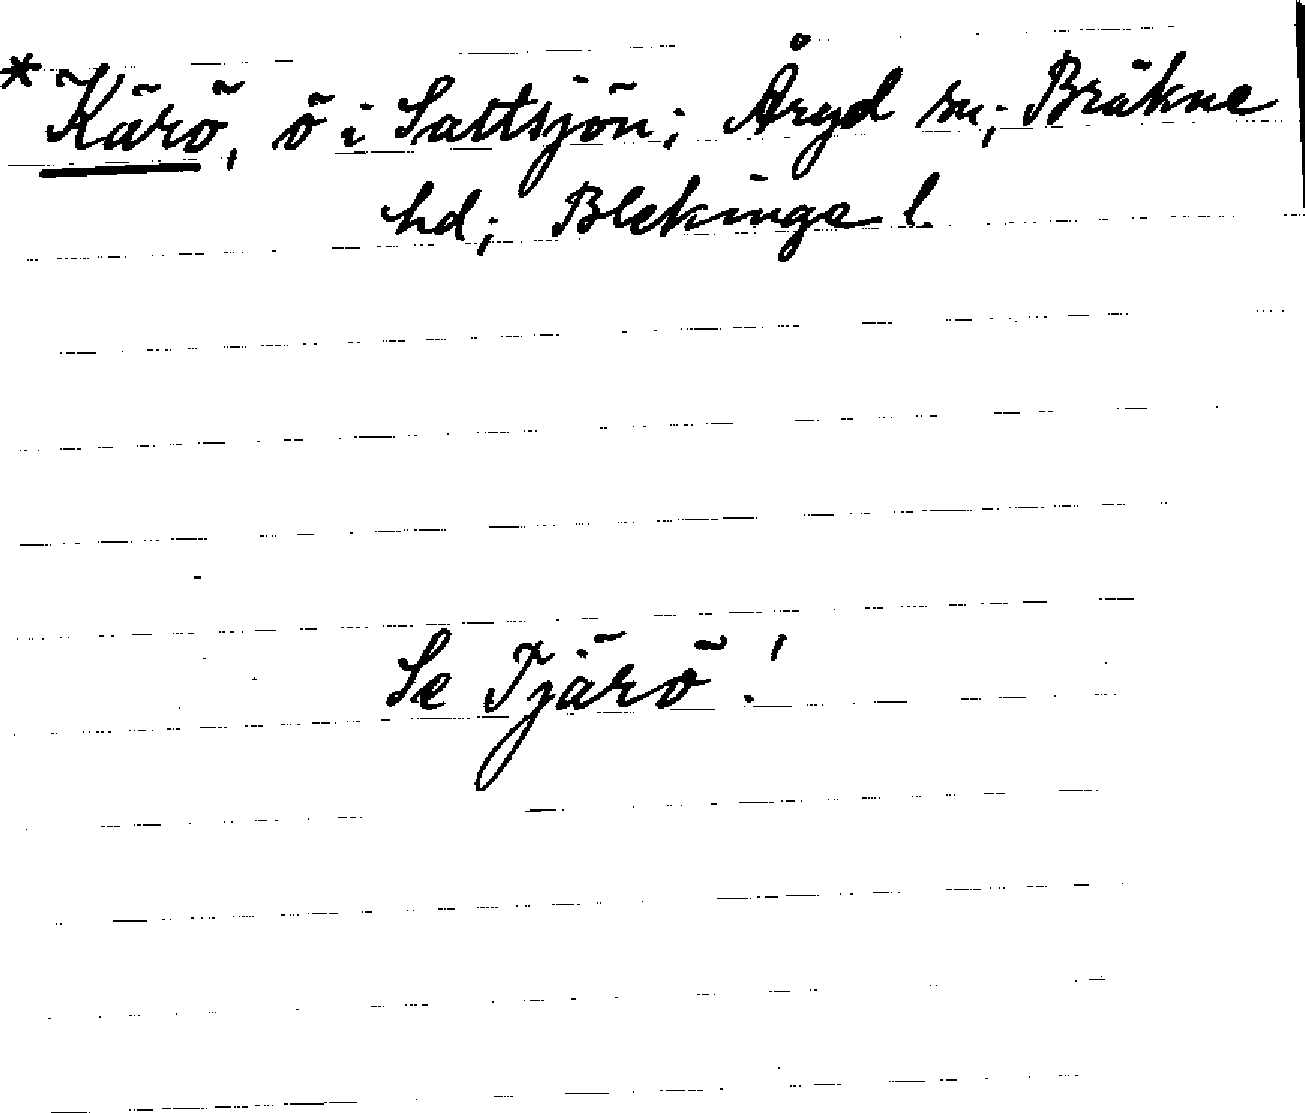 *Kärö, ö i Saltsjön; Åryd sn; Bräkne
hd; Blekinge l.
Se Tjärö!